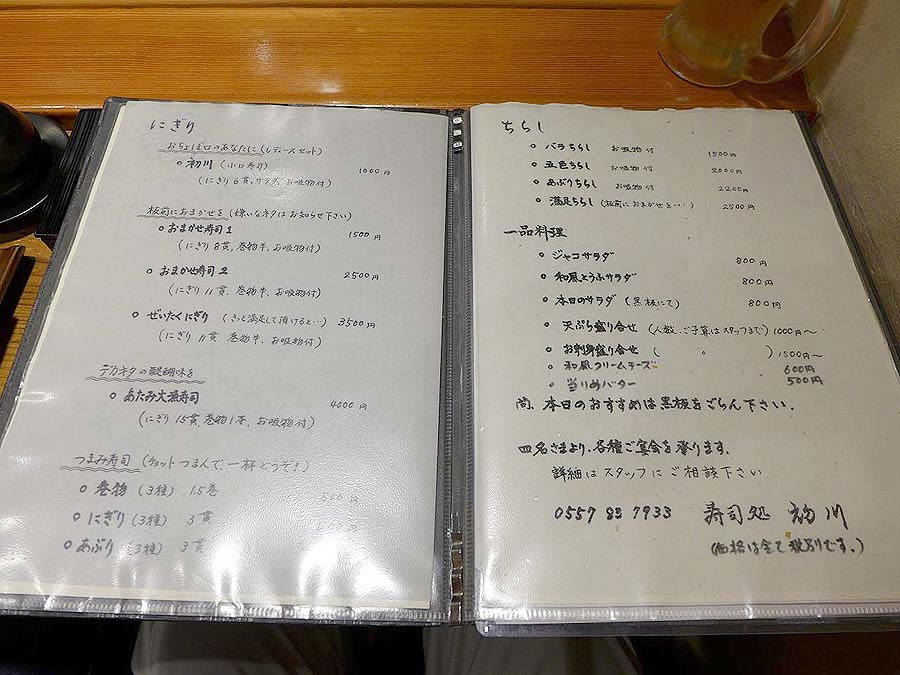 にぎり
おちょぼ口のあなたに(レディースセット)
○ 初川 (小口寿司) 1000円
(にぎり6貫,サラダ,お吸物付)
板前におまかせを(嫌いなネタはお知らせ下さい)
○ おまかせ寿司1 1500円
(にぎり8貫,巻物半,お吸物付)
○ おまかせ寿司2 2500円
(にぎり11貫,巻物半,お吸物付)
○ ぜいたくにぎり (きっと満足して頂けると…) 3500円
(にぎり11貫,巻物半,お吸物付)
デカネタの醍醐味を
○ あたみ大漁寿司 4000円
(にぎり15貫,巻物1本,お吸物付)
つまみ寿司 (チョットつまんで、一杯どうぞ!)
○ 巻物 (3種) 1.5巻 500円
○ にぎり (3種) 3貫
○ あぶり (3種) 3貫
ちらし
○ バラちらし お吸物付 1500円
○ 五色ちらし お吸物付 2000円
○ あぶりちらし お吸物付 2200円
○ 満足ちらし (板前におまかせを…) 2500円
一品料理
○ ジャコサラダ 800円
○ 和風とうふサラダ 800円
○ 本日のサラダ (黒板にて) 800円
○ 天ぷら盛り合せ (人数、ご予算はスタッフまで) 1000円〜
○ お刺身盛り合せ ( 〃 ) 1500円〜
○ 和風クリームチーズ 600円
○ 当りめバター 500円
尚、本日のおすすめは黒板をごらん下さい.
四名さまより、各種ご宴会を承ります.
詳細はスタッフにご相談下さい
0557 83 7933 寿司処 初川
(価格は全て税別です.)